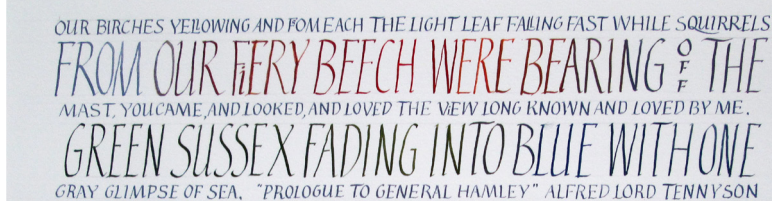 OUR BIRCHES YELLOWING AND FOM EACH THE LIGHT LEAF FALLING FAST WHILE SQUIRRELS
FROM OUR FIERY BEECH WERE BEARING OFF THE
MAST, YOU CAME, AND LOOKED, AND LOVED THE VIEW LONG KNOWN AND LOVED BY ME.
GREEN SUSSEX FADING INTO BLUE WITH ONE
GRAY GLIMPSE OF SEA. "PROLOGUE TO GENERAL HAMLEY" ALFRED LORD TENNYSON